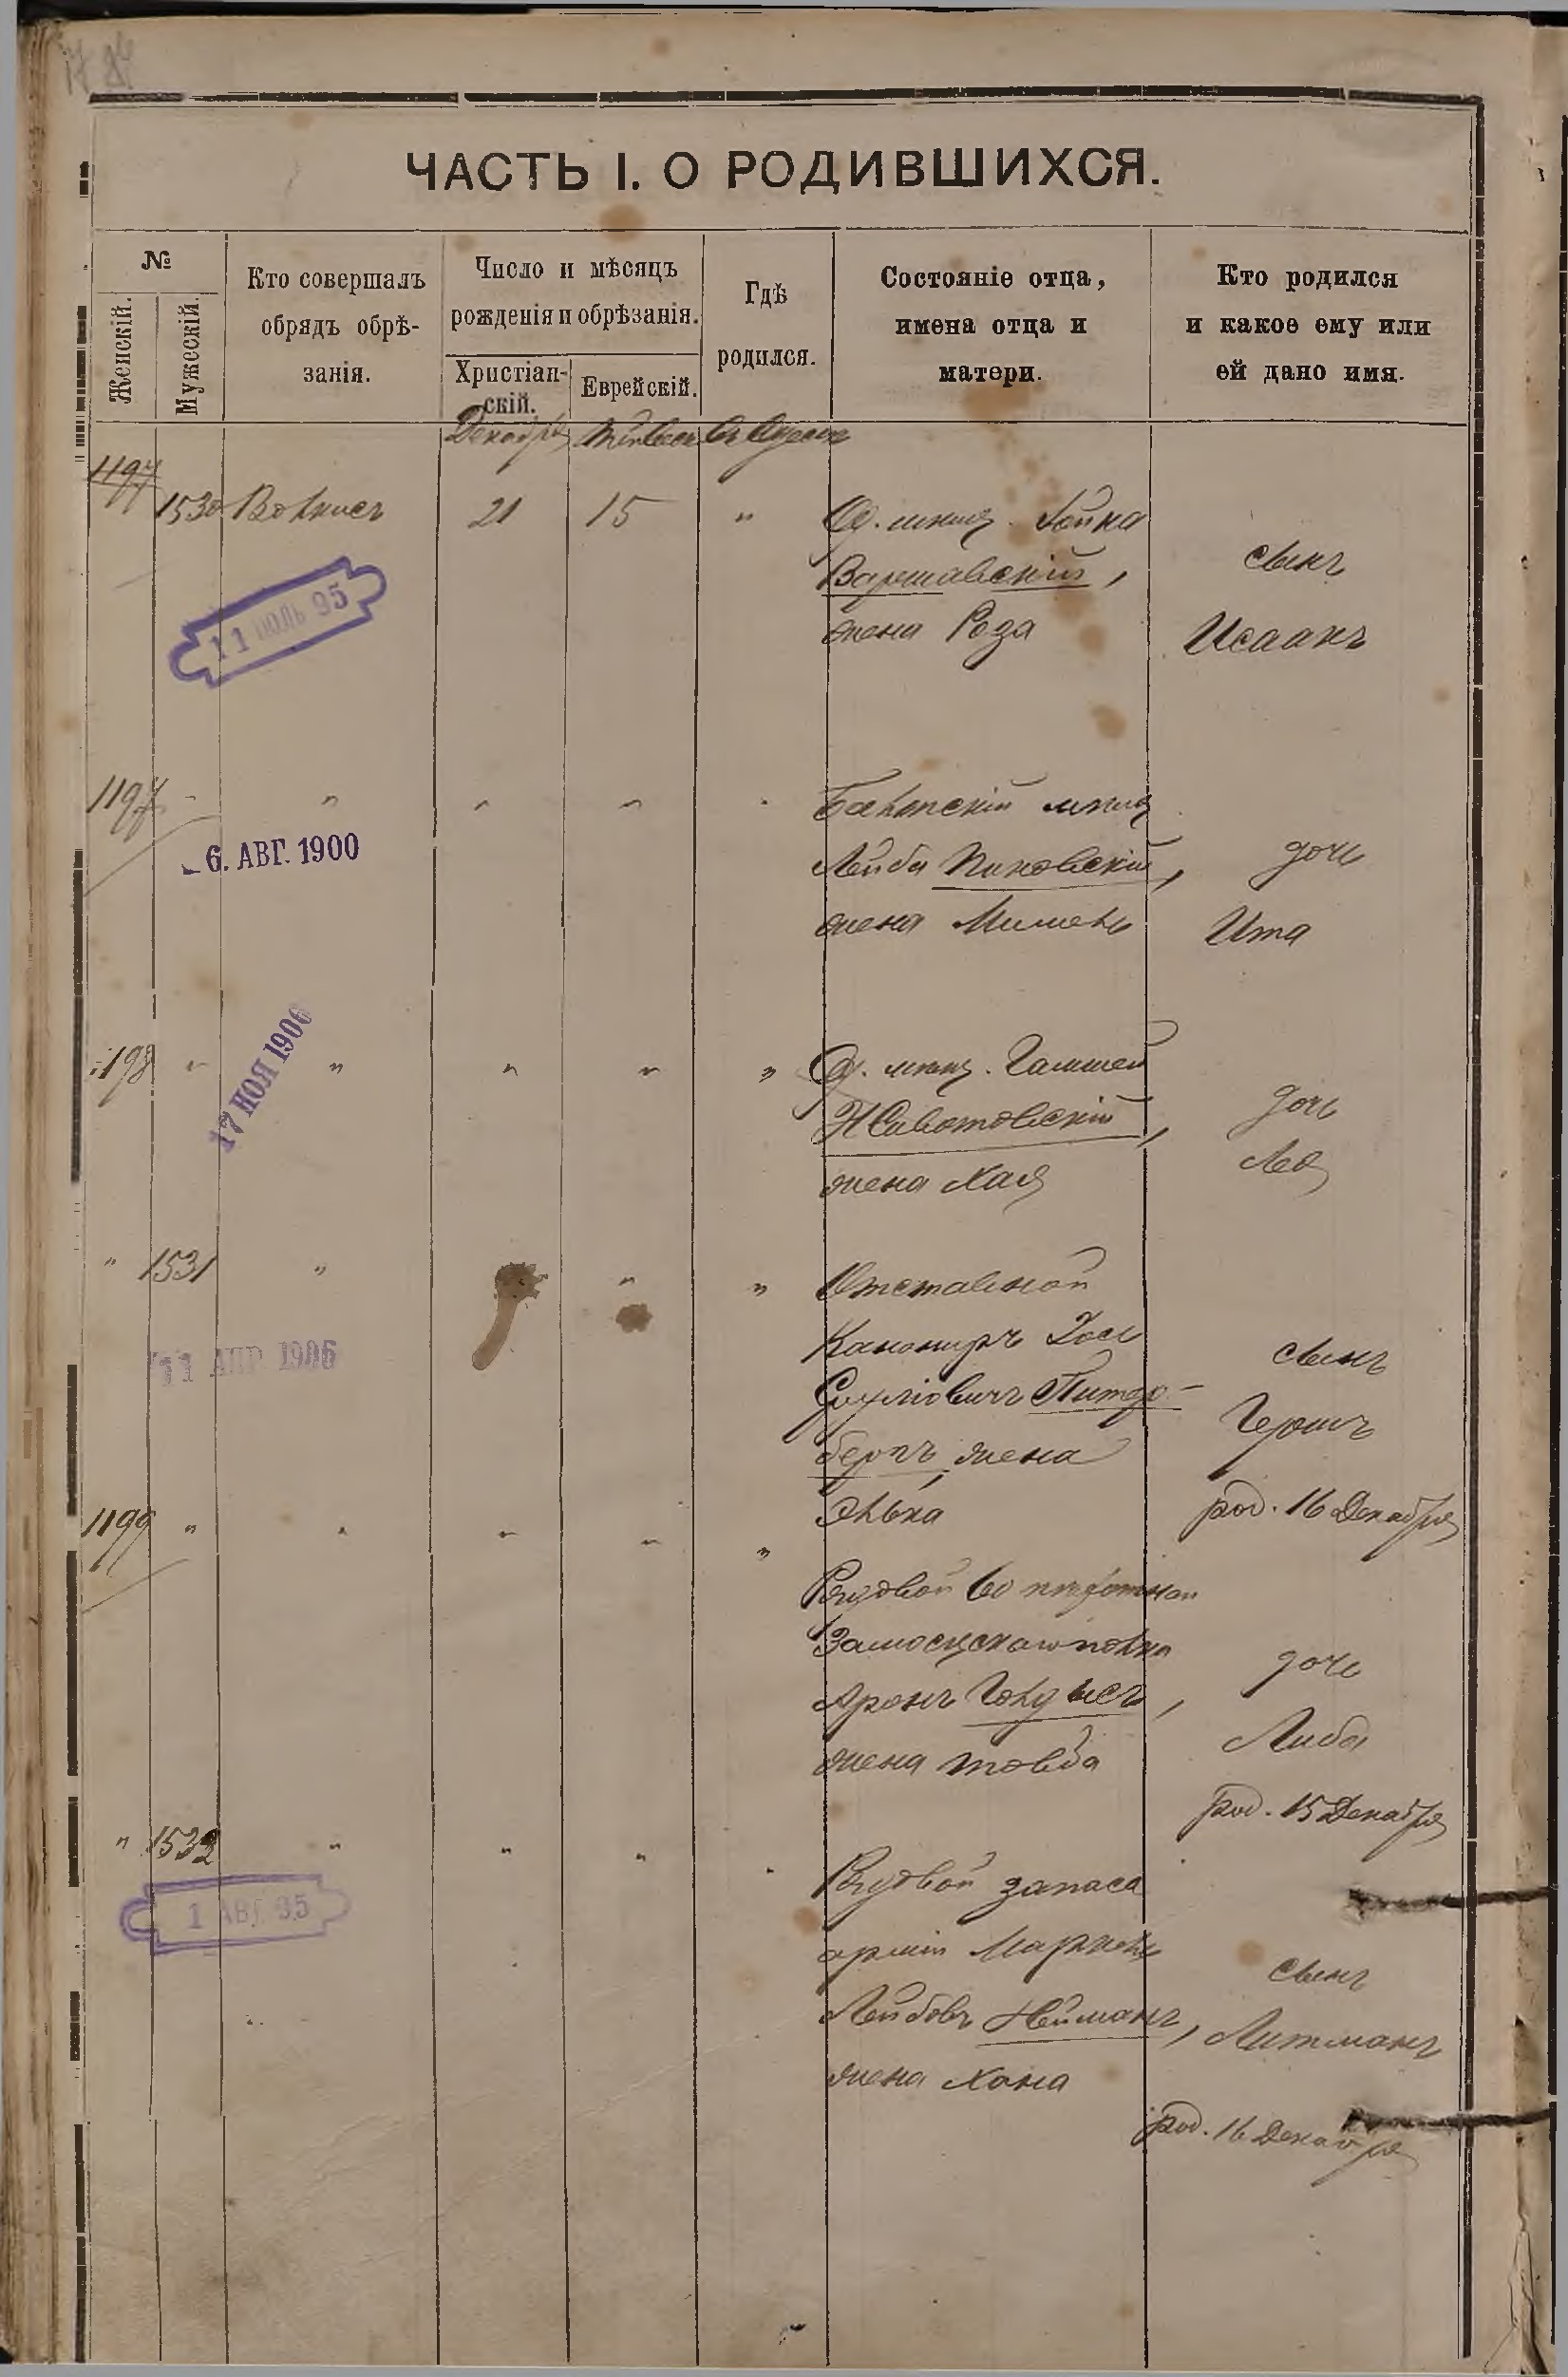 ЧАСТЬ I. О РОДИВШИХСЯ.
№
Женскій.
Мужескій.
Кто совершалъ
обрядъ обрѣ-
занія.
Число и мѣсяцъ
рожденія и обрѣзанія.
Христіан-
скій.
Еврейскій.
Гдѣ
родился.
Состояніе отца,
имена отца и
матери.
Кто родился
и какое ему или
ей дано имя.
Декабря Тейвесъ Въ Одессѣ
1197
1530 Вольисъ 21 15 " Од. мѣщ. Іойна
Варшавскій,
жена Роза
сынъ
Исаакъ
11 ІЮЛЬ 95
1197 " " " " "
мѣщ
Лейба Пиковскій,
жена
дочь
Ита
6. АВГ. 1900
1198 " " " " " Од. мѣщ.
Животовскій,
жена Хая
дочь
Лея
17 НОЯ 1906
" 1531 " " " Отставной
Канониръ
бергъ, жена
Элька
сынъ
Гершъ
род. 16 Декабря
11 АПР 1906
1199 " " " " " Рядовой 60 пѣхотнаго
Замосцскаго полка
Аронъ
жена Товба
дочь
Либа
род. 15 Декабря
" 1532 " " " " Рядовой запаса
арміи
Лейбовъ Нейманъ,
жена Хана
сынъ
Литманъ
род. 16 Декабря
1 АВГ. 95